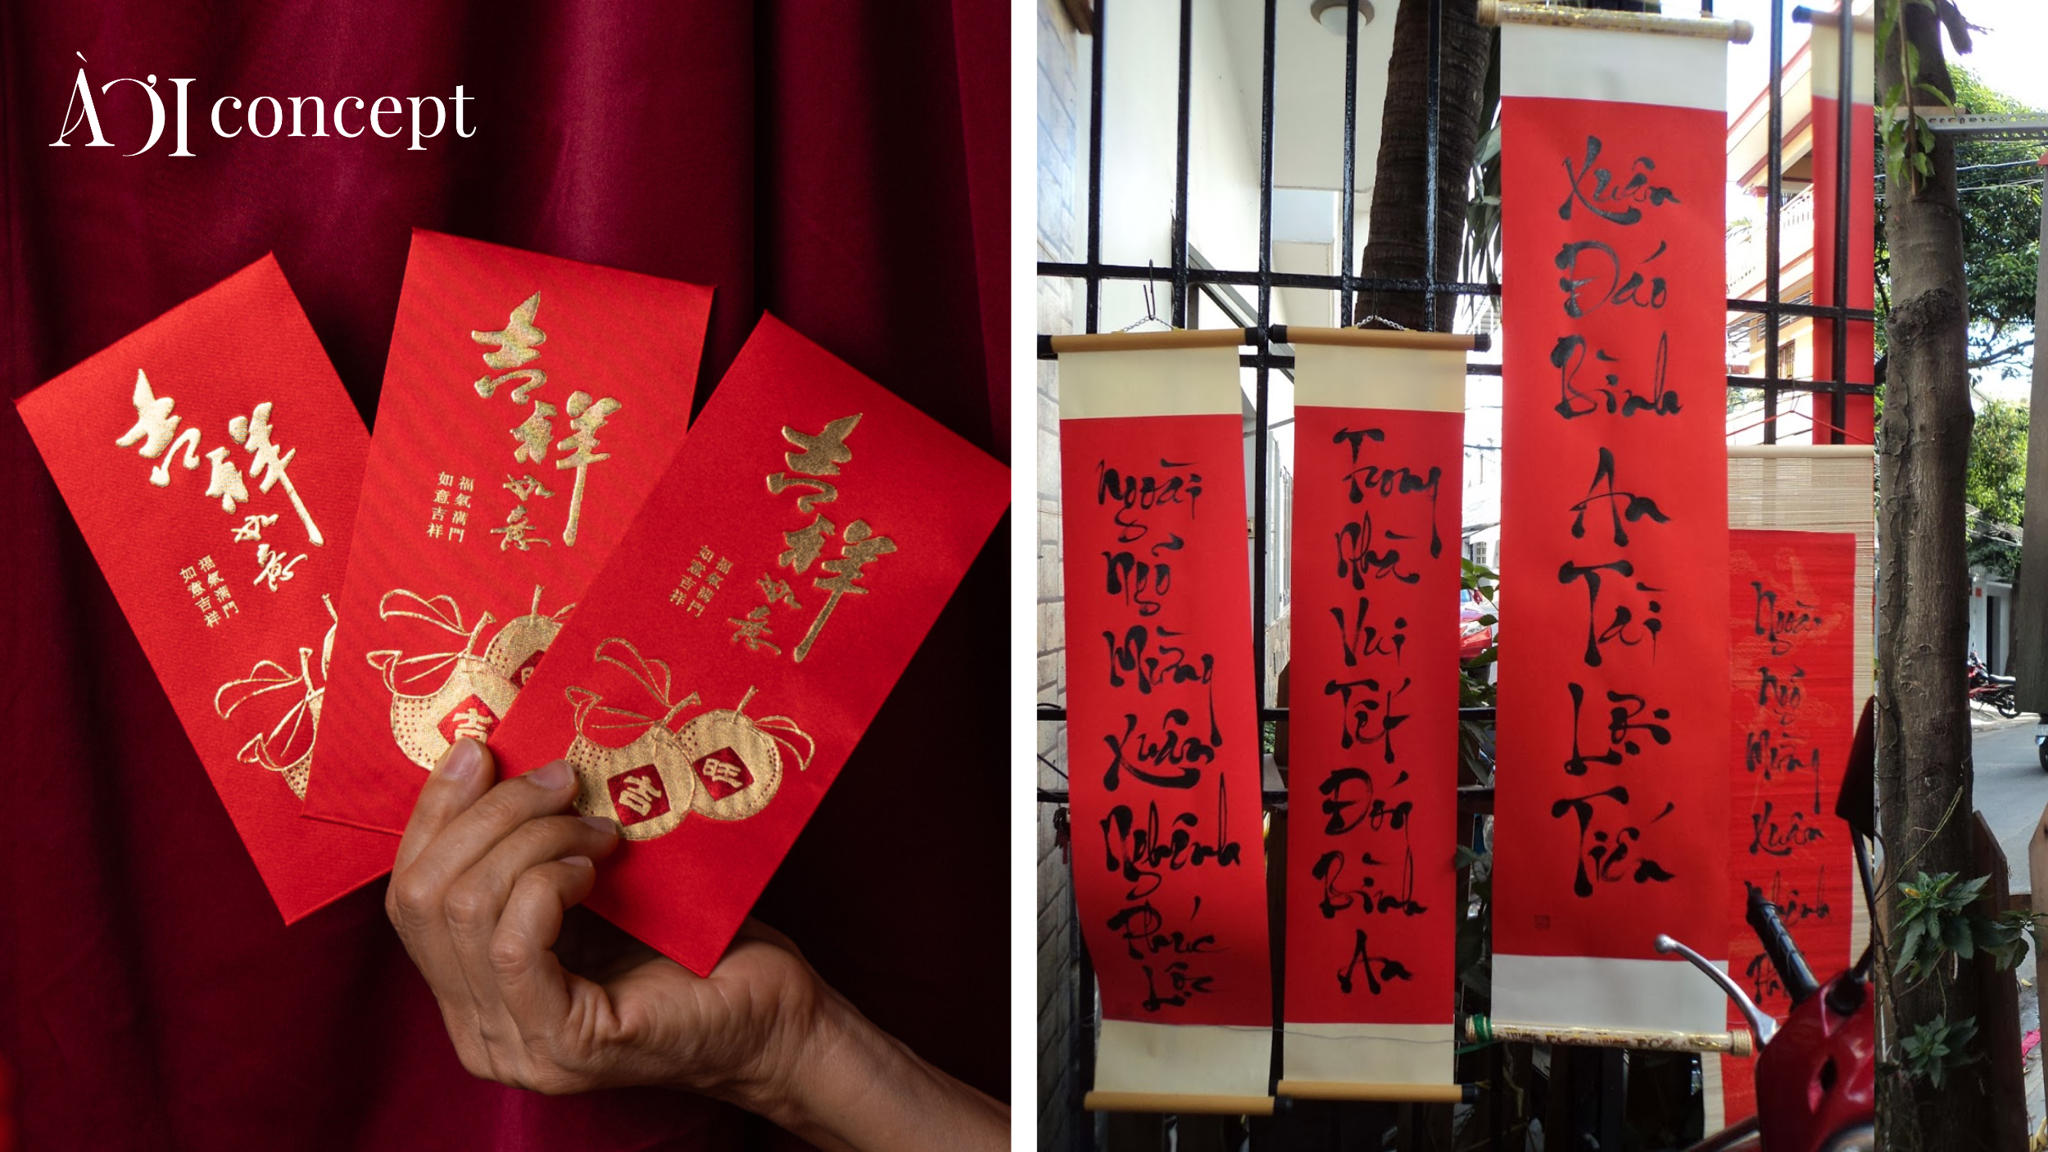 ÀƠI concept
吉祥
如意
福氣滿門
如意吉祥
吉祥
如意
福氣滿門
如意吉祥
吉
吉祥
如意
福氣滿門
如意吉祥
吉
旺
Ngoài
Ngõ
Mừng
Xuân
Nghênh
Phúc
Lộc
Trong
Nhà
Vui
Tết
Đón
Bình
An
Xuân
Đáo
Bình
An
Tài
Lợi
Tiến
Ngoài
Ngõ
Mừng
Xuân
Nghênh